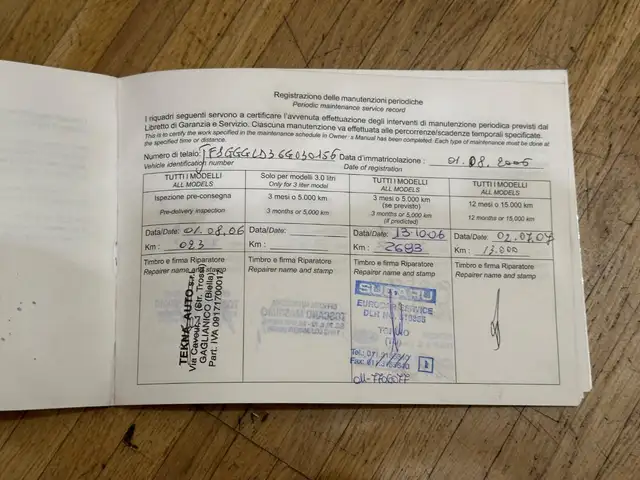 Registrazione delle manutenzioni periodiche
Periodic maintenance service record
I riquadri seguenti servono a certificare l'avvenuta effettuazione degli interventi di manutenzione periodica previsti dal
Libretto di Garanzia e Servizio. Ciascuna manutenzione va effettuata alle percorrenze/scadenze temporali specificate.
This is to certify the work specified in the maintenance schedule in Owner's Manual has been completed. Each type of maintenance must be done at
the specified time or distance.
Numero di telaio: Data d'immatricolazione : 01.08.2006
Vehicle identification number Date of registration
TUTTI I MODELLI Solo per modelli 3.0 litri TUTTI I MODELLI TUTTI I MODELLI
ALL MODELS Only for 3 liter model ALL MODELS ALL MODELS
Ispezione pre-consegna 3 mesi o 5.000 km 3 mesi o 5.000 km 12 mesi o 15.000 km
(se previsto)
Pre-delivery inspection 3 months or 5,000 km 3 months or 5,000 km 12 months or 15,000 km
(if predicted)
Data/Date: 01.08.06 Data/Date: Data/Date: 13.10.06 Data/Date: 02.07.07
Km : 023 Km : Km : 2693 Km : 13.000
Timbro e firma Riparatore Timbro e firma Riparatore Timbro e firma Riparatore Timbro e firma Riparatore
Repairer name and stamp Repairer name and stamp Repairer name and stamp Repairer name and stamp
TEKNA AUTO s.r.l.
Via Cavour, (Str. Trossi)
GAGLIANICO (Biella)
Part. IVA
SUBARU
SERVICE
TORINO
(TO)
Tel.: 011
Fax: 011